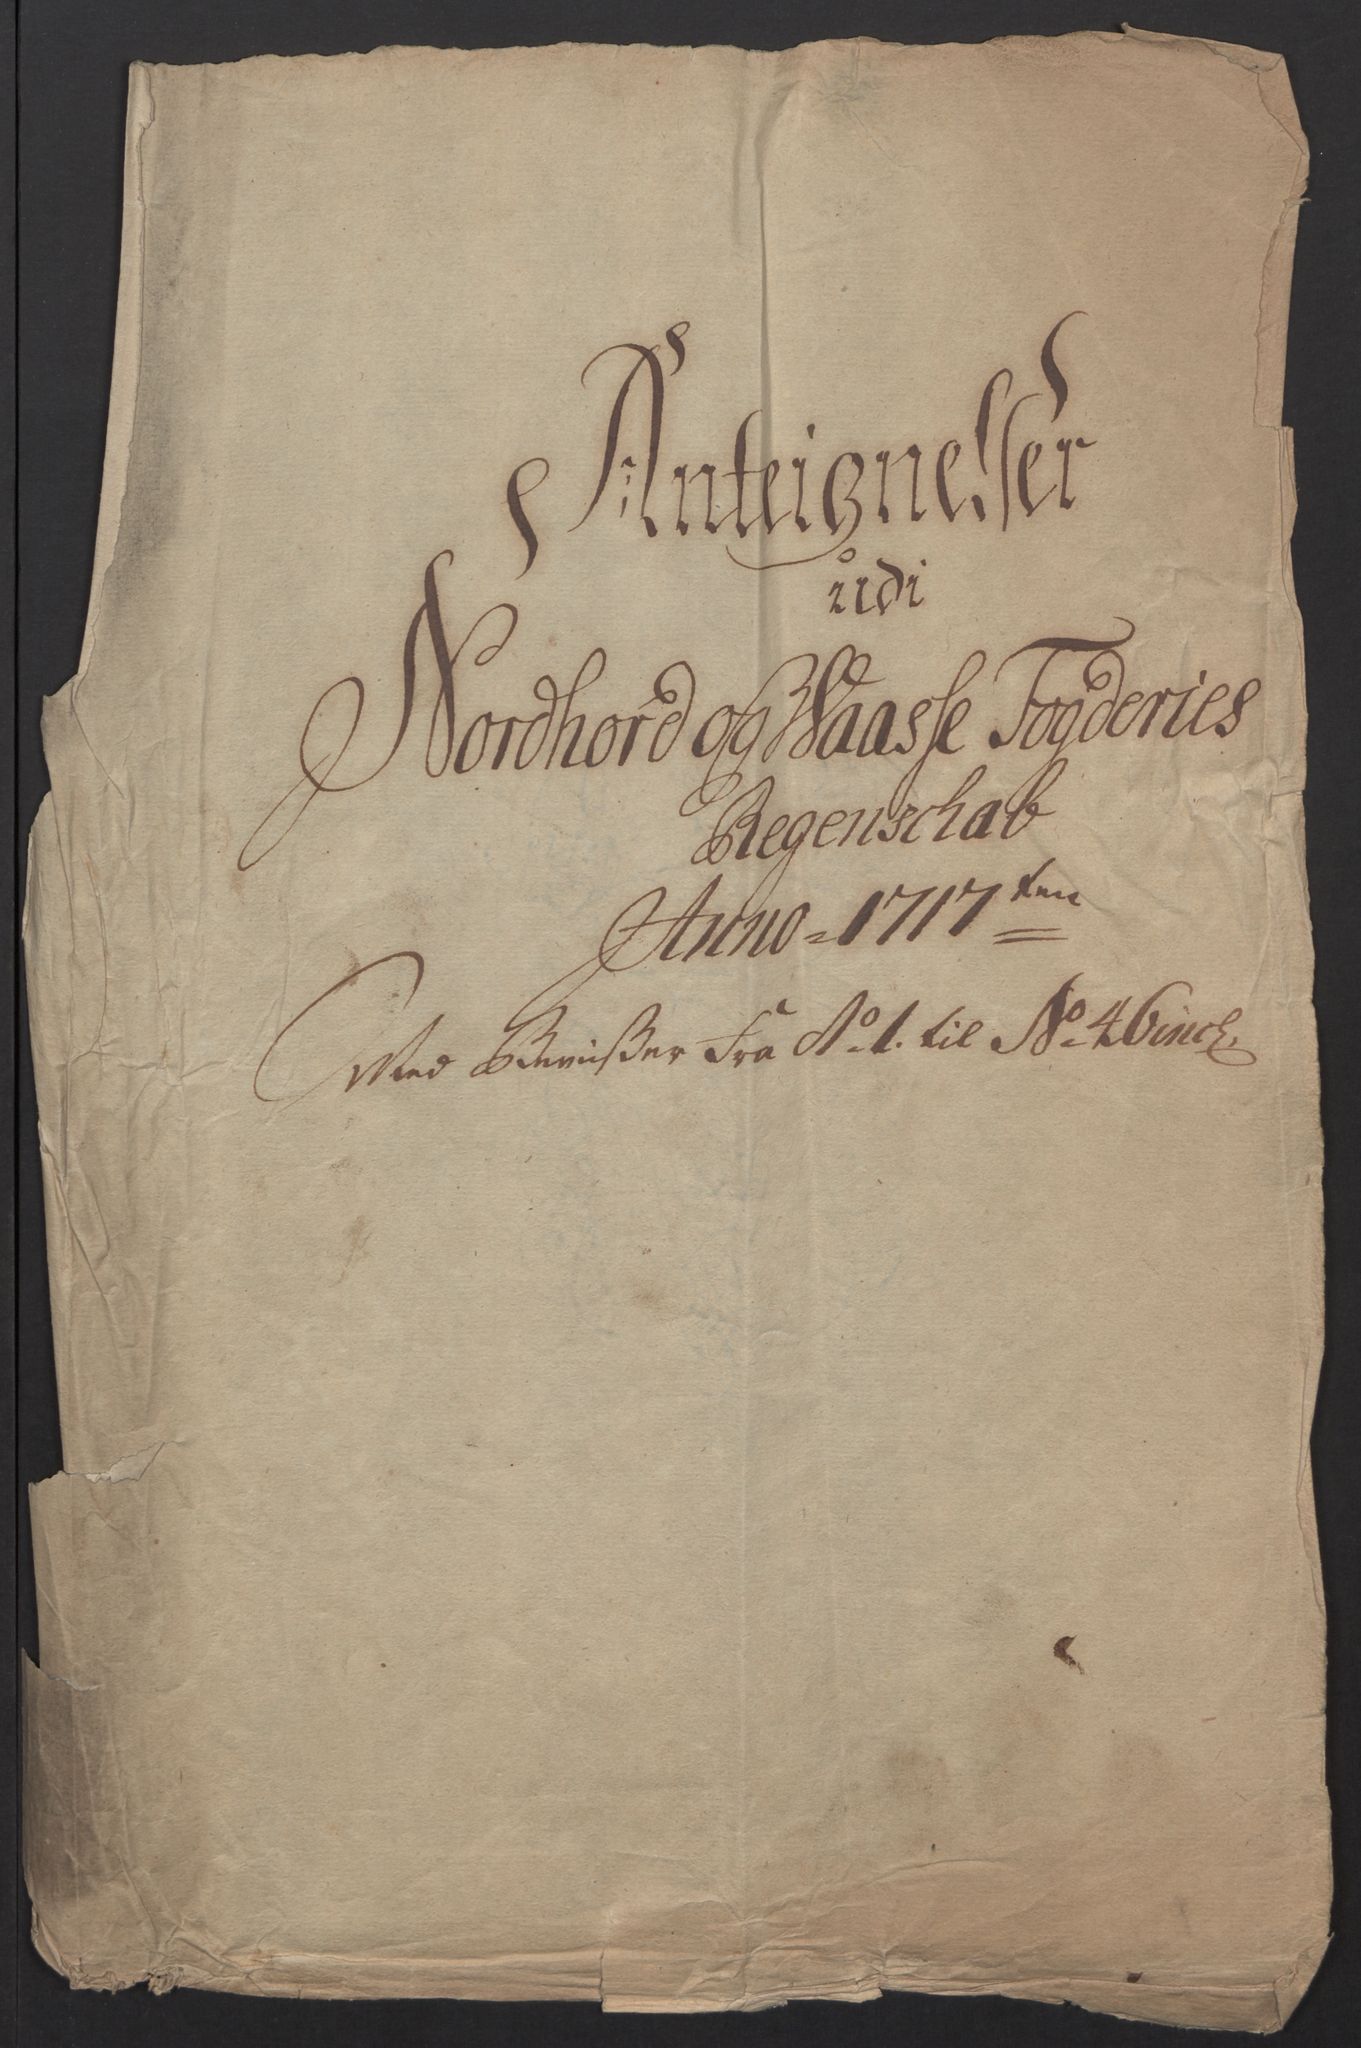 Anteignelser
udi
Nordhord og Waasse Fogderies
Regenschab
Anno = 1717ten
Med Beviißer Fra No 1. til No 46 incl.